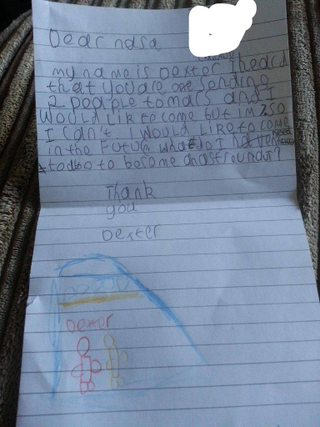 Dear nasa
my name is Dexter I heard
that you are sending
2 people to mars and I
would like to come but im 7 so
I can't I would like to come
in the future what do I
to do to become an astrounaut?
Thank
you
Dexter
Dexter